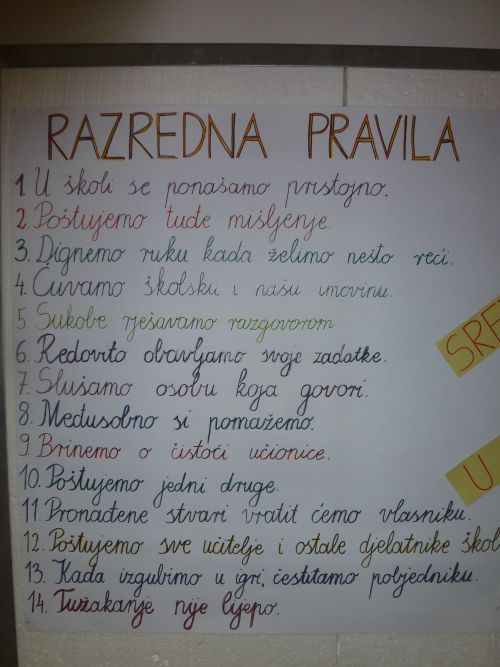 RAZREDNA PRAVILA
1. U školi se ponašamo pristojno.
2. Poštujemo tuđe mišljenje.
3. Dignemo ruku kada želimo nešto reći.
4. Čuvamo školsku i našu imovinu.
5. Sukobe rješavamo razgovorom.
6. Redovito obavljamo svoje zadatke.
7. Slušamo osobu koja govori.
8. Međusobno si pomažemo.
9. Brinemo o čistoći učionice.
10. Poštujemo jedni druge.
11. Pronađene stvari vratit ćemo vlasniku.
12. Poštujemo sve učitelje i ostale djelatnike škol
13. Kada izgubimo u igri, čestitamo pobjedniku.
14. Tužakanje nije lijepo.
SRE
U